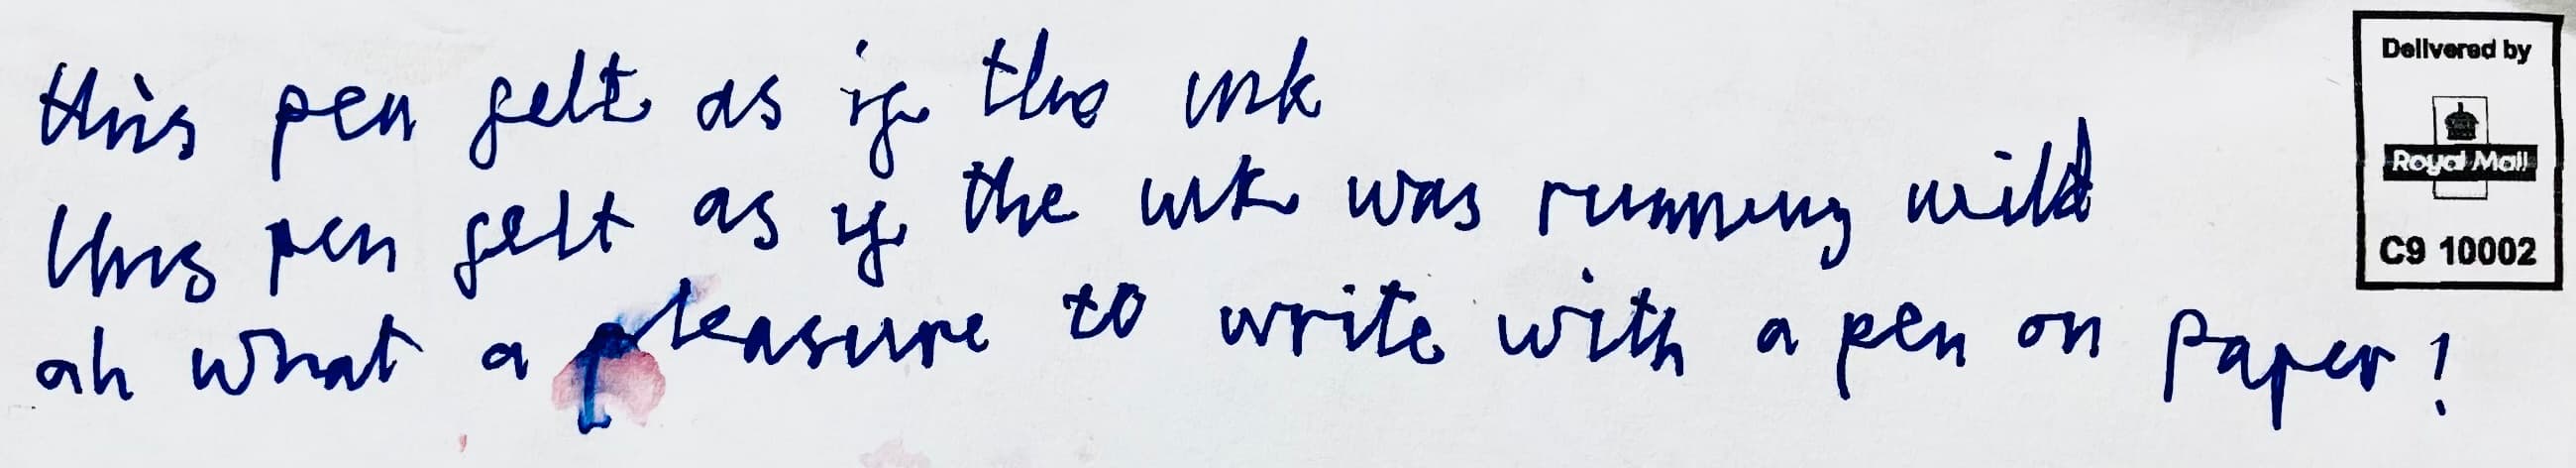 this pen felt as if the ink
this pen felt as if the ink was running wild
ah what a pleasure to write with a pen on paper!
Delivered by
Royal Mail
C9 10002